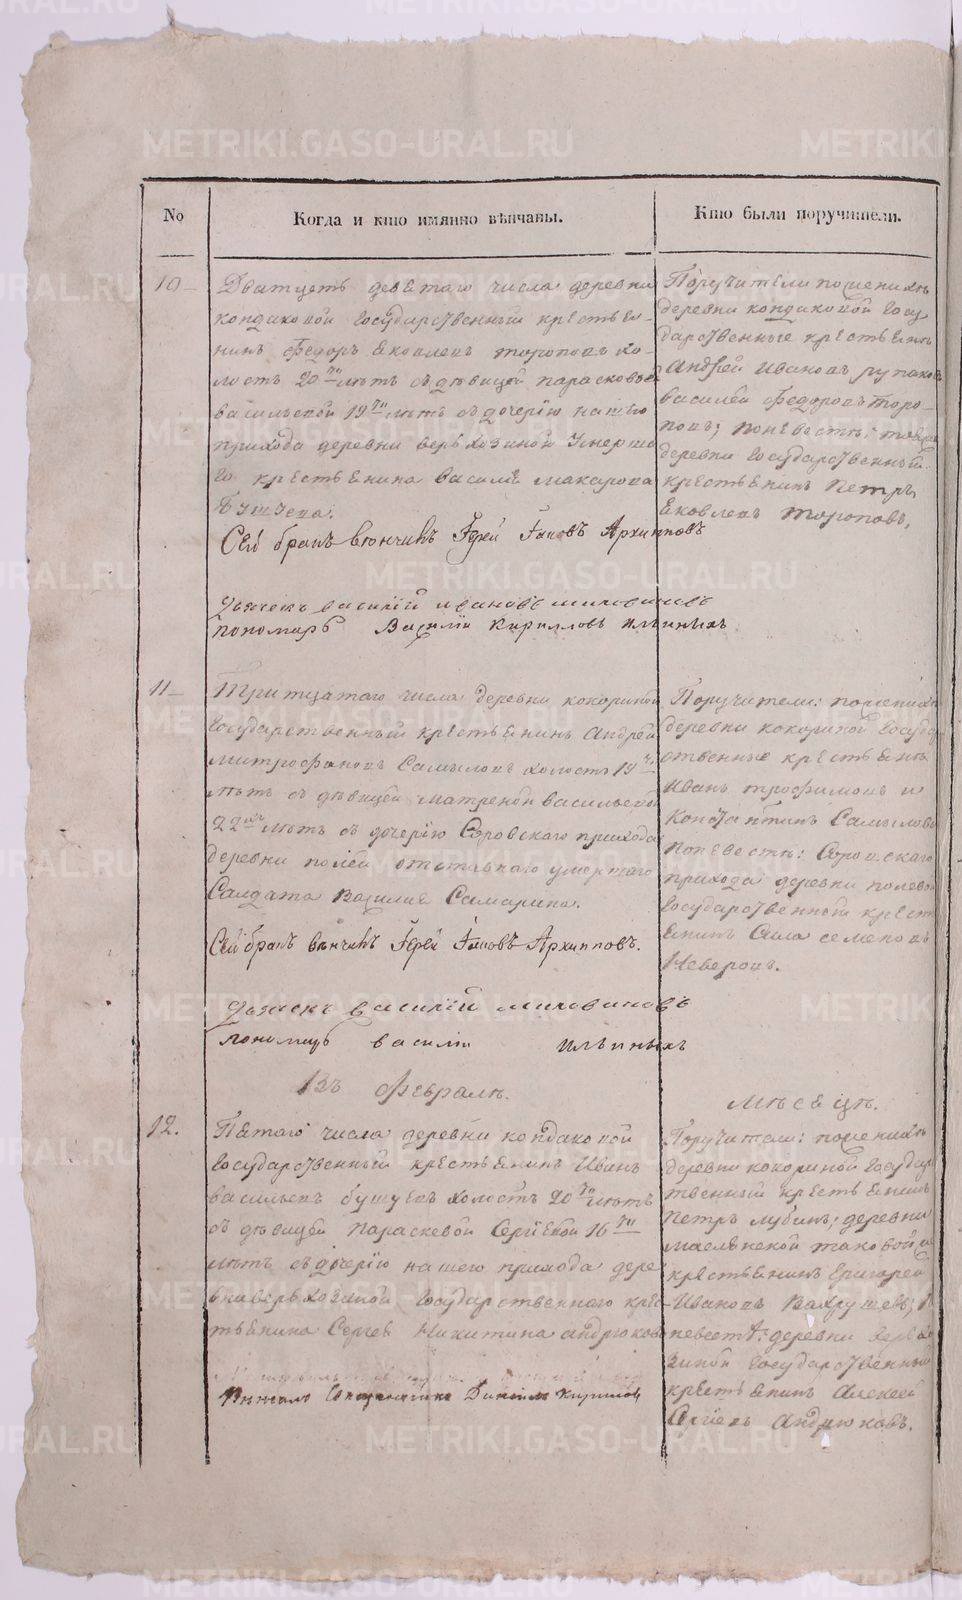 METRIKI.GASO-URAL.RU
№
Когда и кто имянно вѣнчаны.
Кто были поручители.
10
Дватцеть девятаго числа деревни
кондаковой государственный крестья-
нинъ Федоръ Яковлевъ Тороповъ хо-
лостъ 20ти лѣтъ съ дѣвицей Парасковьей
васильевой 19ти лѣтъ съ дочерію нашего
прихода деревни верьхозиной умерша
го крестьянина Василья Макарова
Сей бракъ вѣнчалъ Іерей Іаковъ Архипповъ
дьячекъ василій ивановъ миловановъ
пономарь Василій Кирилловъ Ильиныхъ
Поручители по женихѣ
деревни кондаковой госу
дарственные крестьяне
Андрей Ивановъ
василей Федоровъ Торо-
повъ; по невестѣ: тояже
деревни государственный
крестьянинъ Петръ
Яковлевъ Тороповъ,
11
Тритцатаго числа деревни кокориной
государственный крестьянинъ Андрей
Митрофановъ Самыловъ холостъ 19ти
лѣтъ съ дѣвицей Матреной Васильевой
22 лѣтъ съ дочерію Сыровскаго прихода
деревни полевой отставнаго умершаго
Салдата Василья Самарина.
Сей бракъ вѣнчалъ Іерей Іаковъ Архипповъ.
дьячекъ василій миловановъ
пономарь василій ильиныхъ
Поручители: по женихѣ
деревни кокориной государ
ственные крестьяне
Иванъ трофимовъ и
Константинъ Самыловы
по невестѣ:
прихода деревни полевой
государственный кресть
янинъ Сила семеновъ
Неверовъ.
Въ февралѣ.
мѣсяцѣ.
12.
Пятаго числа деревни кондаковой
государственный крестьянинъ Иванъ
васильевъ бушуевъ холостъ 20ти лѣтъ
съ дѣвицей Параскевой Сергіевой 16ти
лѣтъ съ дочерію нашего прихода дере
вни верьхозиной государственнаго крес
тьянина Сергея Никитина Андрюкова
Вѣнчалъ Священникъ Кириловъ
Поручители: по женихѣ
деревни кокориной государ
ственный крестьянинъ
Петръ Лубинъ; деревни
маслянской таковой же
крестьянинъ Григорей
Ивановъ Вахрушевъ; по
невестѣ: деревни верьхо
зиной государственный
крестьянинъ Алексей
Сергіевъ Андрюковъ.